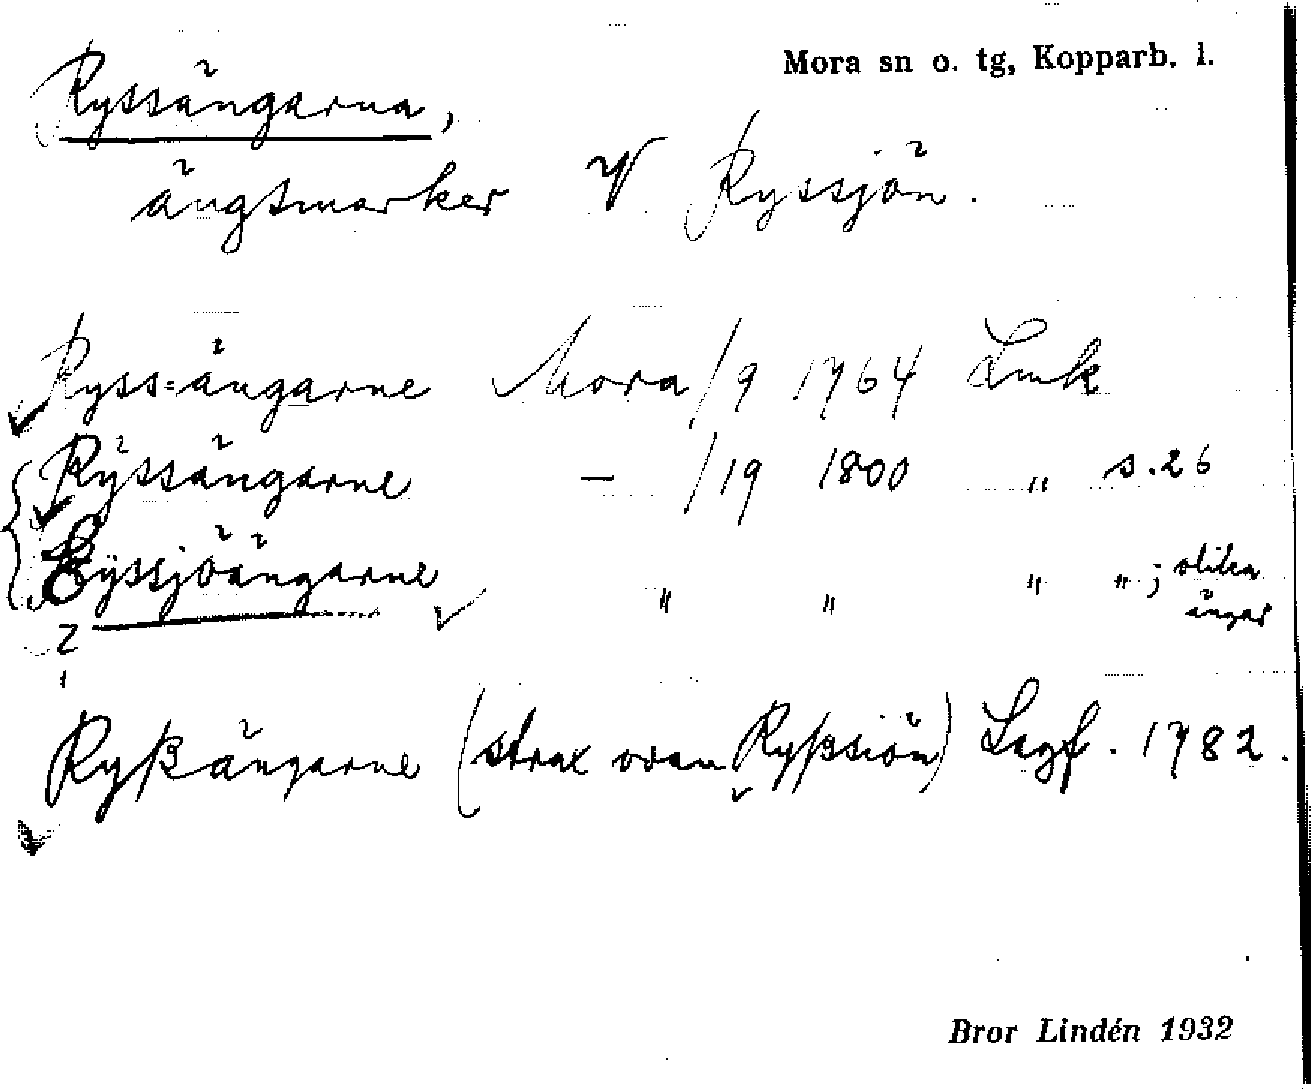 Mora sn o. tg, Kopparb. l.
Ryssängarna,
ängsmarker V Ryssjön.
Ryss=ängarne Mora/9 1764 Lmk
Rÿssängarne — /19 1800 „ s.26
Eÿssjöängarne „ „ „ „; slåtea ängar
?
Ryßängarne (strax ovan Ryßsiön) Lagf. 1782.
Bror Lindén 1932